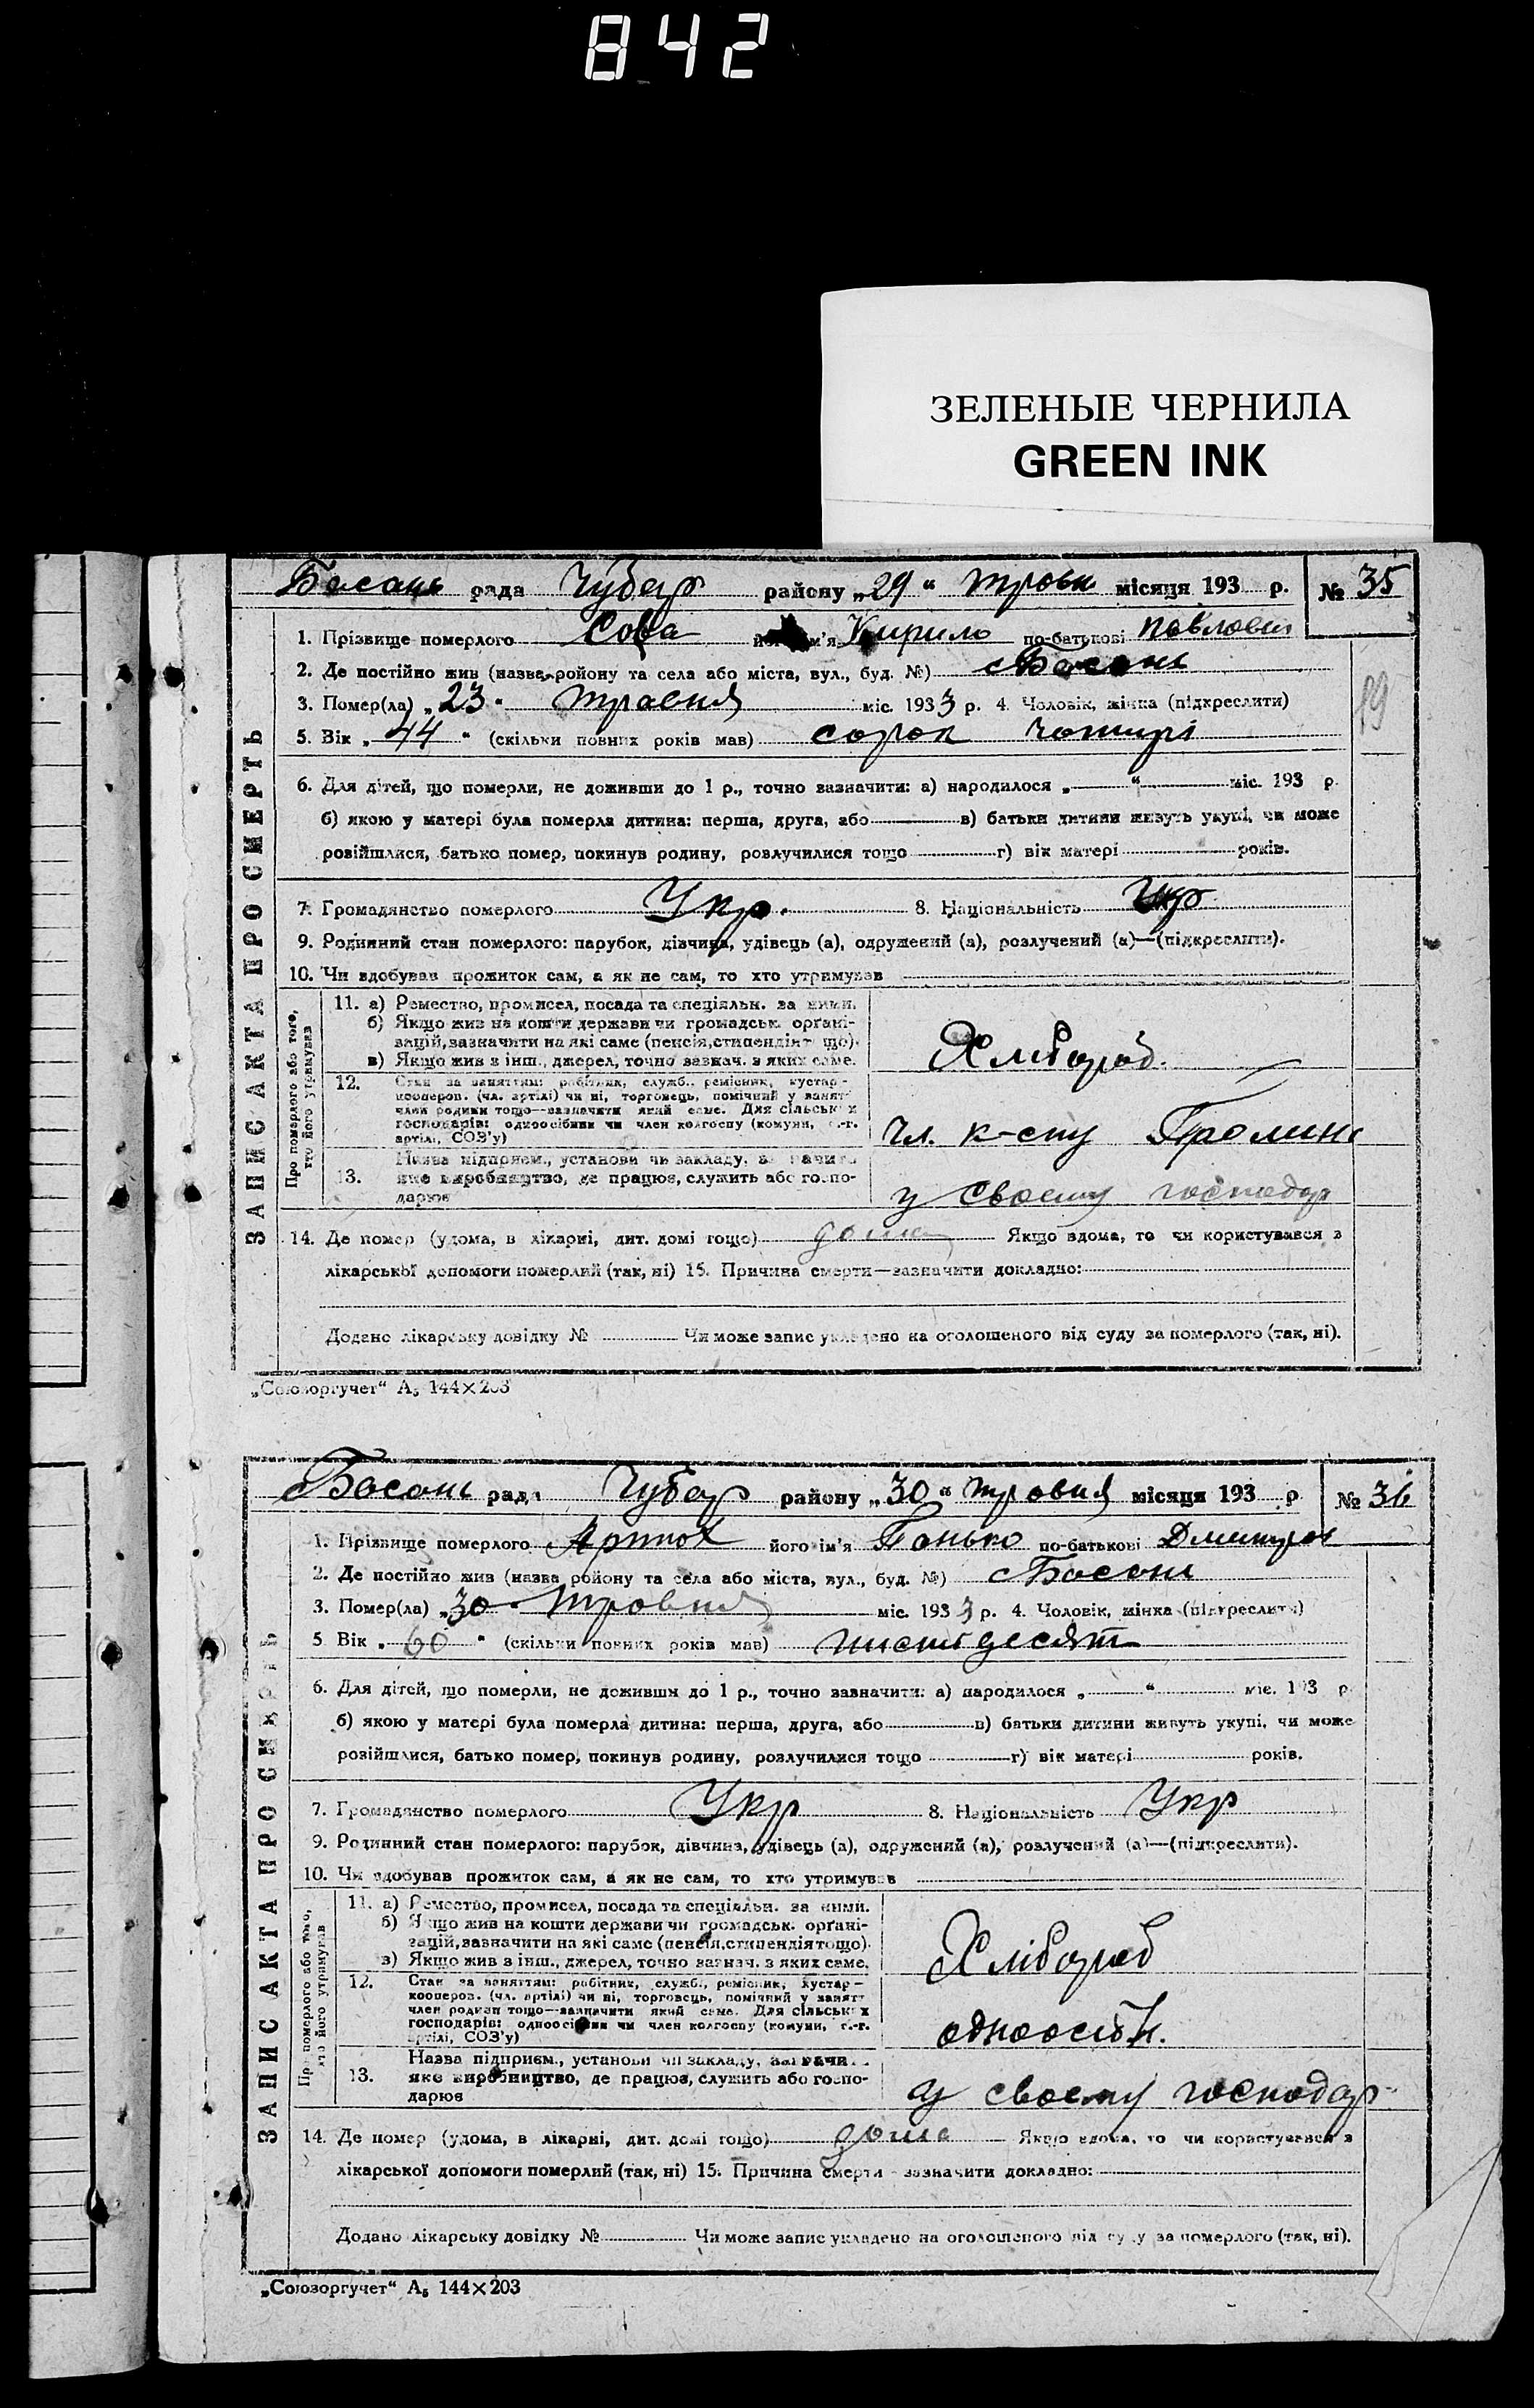 842
ЗЕЛЕНЫЕ ЧЕРНИЛА
GREEN INK
Басань рада Чубар району „29“ травн місяця 193 р. № 35
1. Прізвище померлого Сова його ім'я Кирило по-батькові Павлович
2. Де постійно жив (назва району та села або міста, вул., буд. №) Басань
3. Помер(ла) „23“ травня міс. 1933 р. 4. Чоловік, жінка (підкреслити)
19
5. Вік „44“ (скільки повних років мав) сорок чотирі
6. Для дітей, що померли, не доживши до 1 р., точно зазначити: а) народилося „ “ міс. 193 р.
б) якою у матері була померла дитина: перша, друга, або в) батьки дитини живуть укупі, чи може
розійшлися, батько помер, покинув родину, розлучилися тощо г) вік матері років.
7. Громадянство померлого Укр. 8. Національність Укр
9. Родинний стан померлого: парубок, дівчина, удівець (а), одружений (а), розлучений (а)—(підкреслити).
10. Чи здобував прожиток сам, а як не сам, то хто утримував
ЗАПИС АКТА ПРО СМЕРТЬ
Про померлого або того,
хто його утримував
11. а) Ремество, промисел, посада та спеціяльн. за ними.
б) Якщо жив на кошти держави чи громадськ. орґані-
зацій, зазначити на які саме (пенсія, стипендія тощо).
в) Якщо жив з інш., джерел, точно зазнач. з яких саме.
Хлібороб.
12. Стан за заняттям: робітник, служб., ремісник, кустар-
кооперов. (чл. артілі) чи ні, торговець, помічний у занятт
член родини тощо—зазначити який саме. Для сільських
господарів: одноосібник чи член колгоспу (комуни, с.-г.
артілі, СОЗ'у)
чл. к-спу
13. Назва підприєм., установи чи закладу, зазначити
яке виробництво, де працює, служить або госпо-
дарює
у своему господар
14. Де помер (удома, в лікарні, дит. домі тощо) дома Якщо вдома, то чи користувався з
лікарської допомоги померлий (так, ні) 15. Причина смерти—зазначити докладно:
Додано лікарську довідку № Чи може запис укладено на оголошеного від суду за померлого (так, ні).
„Союзоргучет“ А₅ 144×203
Басань рада Чубар району „30“ травня місяця 193 р № 36
1. Прізвище померлого його ім'я по-батькові Дмитров
2. Де постійно жив (назва району та села або міста, вул., буд. №) Басань
3. Помер(ла) „30“ травня міс. 1933 р. 4. Чоловік, жінка (підкреслити)
5 Вік „60“ (скільки повних років мав) шистдесят
6. Для дітей, що померли, не доживши до 1 р., точно зазначити: а) народилося „ “ міс. 193 р
б) якою у матері була померла дитина: перша, друга, або в) батьки дитини живуть укупі, чи може
розійшлися, батько помер, покинув родину, розлучилися тощо г) вік матері років.
7. Громадянство померлого Укр 8. Національність Укр
9. Родинний стан померлого: парубок, дівчина, удівець (а), одружений (а), розлучений (а)—(підкреслити).
10. Чи здобував прожиток сам, а як не сам, то хто утримував
ЗАПИС АКТА ПРО СМЕРТЬ
Про померлого або того,
хто його утримував
11. а) Ремество, промисел, посада та спеціяльн. за ними.
б) Якщо жив на кошти держави чи громадськ. орґані-
зацій, зазначити на які саме (пенсія, стипендія тощо).
в) Якщо жив з інш., джерел, точно зазнач. з яких саме.
Хлібороб
12. Стан за заняттям: робітник, служб., ремісник, кустар-
кооперов. (чл. артілі) чи ні, торговець, помічний у занятт
член родини тощо—зазначити який саме. Для сільських
господарів: одноосібник чи член колгоспу (комуни, с.-г.
артілі, СОЗ'у)
одноосібн.
13. Назва підприєм., установи чи закладу, зазначити
яке виробництво, де працює, служить або госпо-
дарює
у своему господар
14. Де помер (удома, в лікарні, дит. домі тощо) дома Якщо вдома, то чи користувався з
лікарської допомоги померлий (так, ні) 15. Причина смерти зазначити докладно:
Додано лікарську довідку № Чи може запис укладено на оголошеного від суду за померлого (так, ні).
„Союзоргучет“ А₅ 144×203